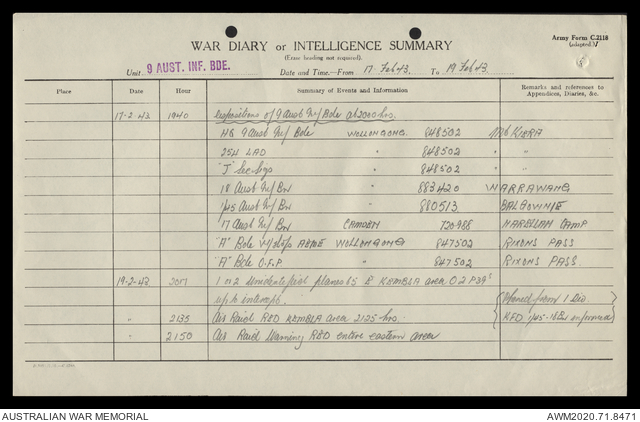 Army Form C.2118
(adapted)
WAR DIARY or INTELLIGENCE SUMMARY
(Erase heading not required).
Unit 9 AUST. INF. BDE. Date and Time—From 17 Feb 43. To 19 Feb 43.
Place Date Hour Summary of Events and Information Remarks and references to Appendices, Diaries, &c.
17-2-43 1940 Dispositions of 9 Aust Inf Bde at 2000 hrs.
HQ 9 Aust Inf Bde WOLLONGONG. 848502 Mt KIERA
254 LAD " 848502 " "
"J" Sec Sigs " 848502 " "
18 Aust Inf Bn " 883420 WARRAWANG
1/45 Aust Inf Bn " 880513. BALGOWNIE
17 Aust Inf Bn CAMDEN 720988 NARELLAN CAMP
"A" Bde AEME WOLLONGONG 847502 RIXONS PASS
"A" Bde O.F.P " 847502 RIXONS PASS.
19-2-43. 2017 1 or 2 Unidentified planes 65 E KEMBLA area O 2 P39s
up to intercept. Phoned from 1 Div.
" 2135 Air Raid RED KEMBLA area 2125 hrs. KFD 1/45 - 18 Bn informed
2150 Air Raid Warning RED entire eastern area
AUSTRALIAN WAR MEMORIAL AWM2020.71.8471